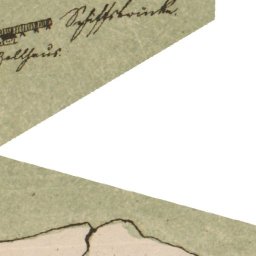 Schiffsbrücke.
Zollhaus.